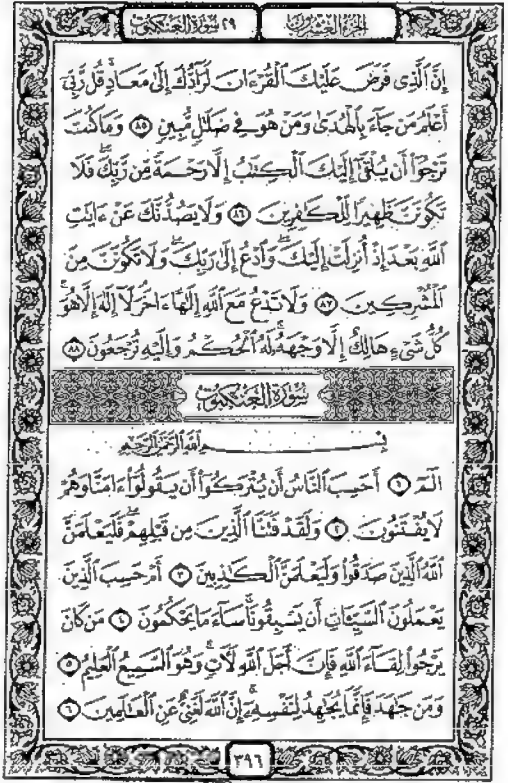 الجزء العشرون
٢٩ سورة العنكبوت
إِنَّ ٱلَّذِى فَرَضَ عَلَيْكَ ٱلْقُرْءَانَ لَرَآدُّكَ إِلَىٰ مَعَادٍۚ قُل رَّبِّىٓ
أَعْلَمُ مَن جَآءَ بِٱلْهُدَىٰ وَمَنْ هُوَ فِى ضَلَٰلٍ مُّبِينٍ ٨٥ وَمَا كُنتَ
تَرْجُوٓا۟ أَن يُلْقَىٰٓ إِلَيْكَ ٱلْكِتَٰبُ إِلَّا رَحْمَةً مِّن رَّبِّكَۖ فَلَا
تَكُونَنَّ ظَهِيرًا لِّلْكَٰفِرِينَ ٨٦ وَلَا يَصُدُّنَّكَ عَنْ ءَايَٰتِ
ٱللَّهِ بَعْدَ إِذْ أُنزِلَتْ إِلَيْكَۖ وَٱدْعُ إِلَىٰ رَبِّكَۖ وَلَا تَكُونَنَّ مِنَ
ٱلْمُشْرِكِينَ ٨٧ وَلَا تَدْعُ مَعَ ٱللَّهِ إِلَٰهًا ءَاخَرَۘ لَآ إِلَٰهَ إِلَّا هُوَۚ
كُلُّ شَىْءٍ هَالِكٌ إِلَّا وَجْهَهُۥۚ لَهُ ٱلْحُكْمُ وَإِلَيْهِ تُرْجَعُونَ ٨٨
سُورَةُ العَنكَبُوتِ
بِسْمِ ٱللَّهِ ٱلرَّحْمَٰنِ ٱلرَّحِيمِ
الٓمٓ ١ أَحَسِبَ ٱلنَّاسُ أَن يُتْرَكُوٓا۟ أَن يَقُولُوٓا۟ ءَامَنَّا وَهُمْ
لَا يُفْتَنُونَ ٢ وَلَقَدْ فَتَنَّا ٱلَّذِينَ مِن قَبْلِهِمْۖ فَلَيَعْلَمَنَّ
ٱللَّهُ ٱلَّذِينَ صَدَقُوا۟ وَلَيَعْلَمَنَّ ٱلْكَٰذِبِينَ ٣ أَمْ حَسِبَ ٱلَّذِينَ
يَعْمَلُونَ ٱلسَّيِّـَٔاتِ أَن يَسْبِقُونَاۚ سَآءَ مَا يَحْكُمُونَ ٤ مَن كَانَ
يَرْجُوا۟ لِقَآءَ ٱللَّهِ فَإِنَّ أَجَلَ ٱللَّهِ لَءَاتٍۚ وَهُوَ ٱلسَّمِيعُ ٱلْعَلِيمُ ٥
وَمَن جَٰهَدَ فَإِنَّمَا يُجَٰهِدُ لِنَفْسِهِۦٓۚ إِنَّ ٱللَّهَ لَغَنِىٌّ عَنِ ٱلْعَٰلَمِينَ ٦
٣٩٦